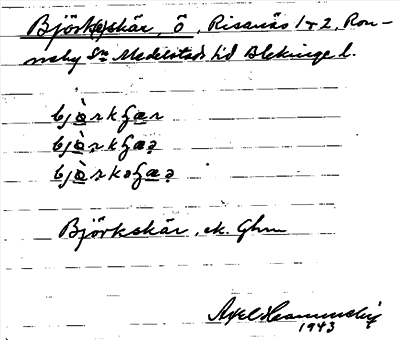 Björk(e)skär, ö, Risanäs 1+2, Ron-
neby Sn Medelstads hd Blekinge l.
bjò̱rkʃæ̱r
bjò̱rkʃæ̱ꝛ
bjò̱rkəʃæ̱ꝛ
Björkskär, ek. Ghm
Axel
1943